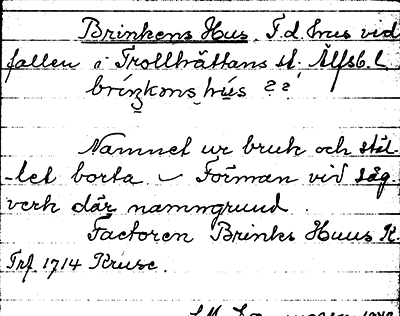 Brinkens Hus. F.d. hus vid
fallen i Trollhättans st. Älfsb. l.
bríŋkəns hús ??
Namnet ur bruk och stäl-
-let borta. – Förman vid såg-
verk där namngrund.
Factoren Brinks Huus K.
Trf. 1714 Kruse.